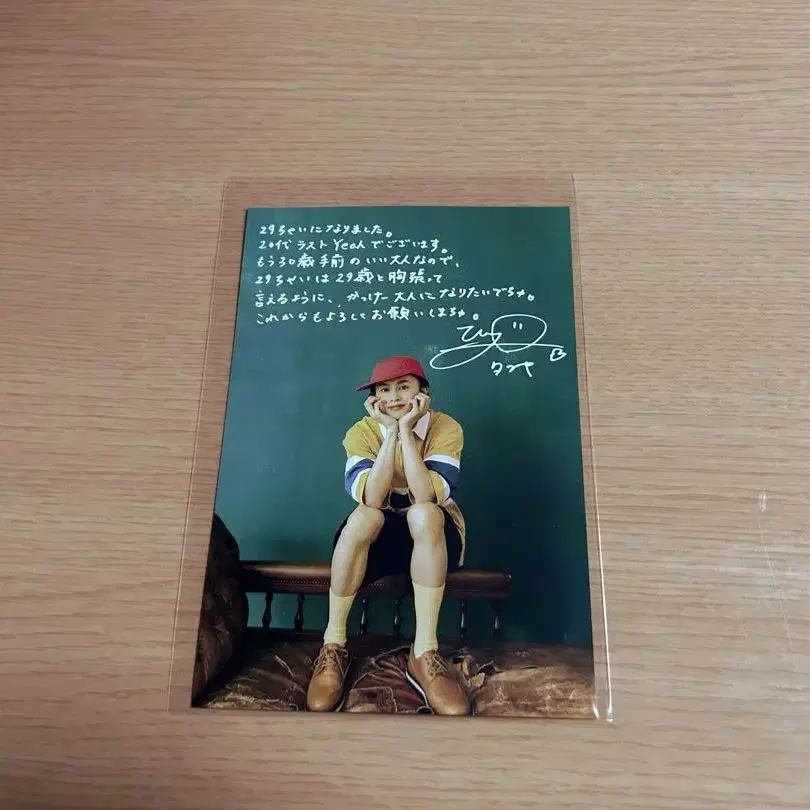 29ちゃいになりました。
20代ラストYeahでございます。
もう30歳手前のいい大人なので、
29ちゃいは29歳と胸張って
言えるように、かっけー大人になりたいでちゅ。
これからもよろしくお願いしまちゅ。